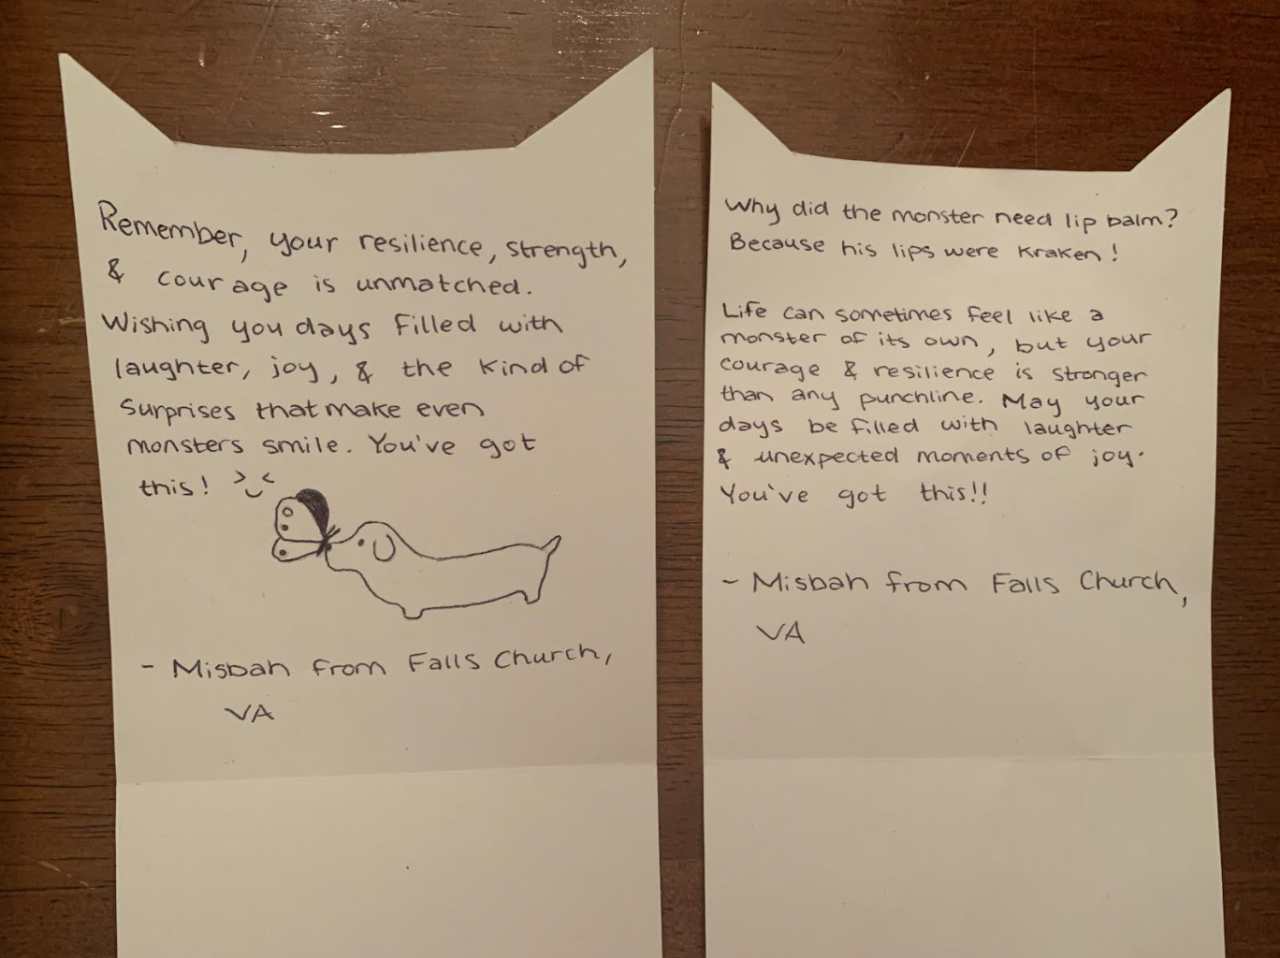 Remember, your resilience, strength,
& courage is unmatched.
Wishing you days filled with
laughter, joy, & the kind of
surprises that make even
monsters smile. You've got
this!
- Misbah from Falls Church,
VA
Why did the monster need lip balm?
Because his lips were Kraken!
Life can sometimes feel like a
monster of its own, but your
courage & resilience is stronger
than any punchline. May your
days be filled with laughter
& unexpected moments of joy.
You've got this!!
- Misbah from Falls Church,
VA